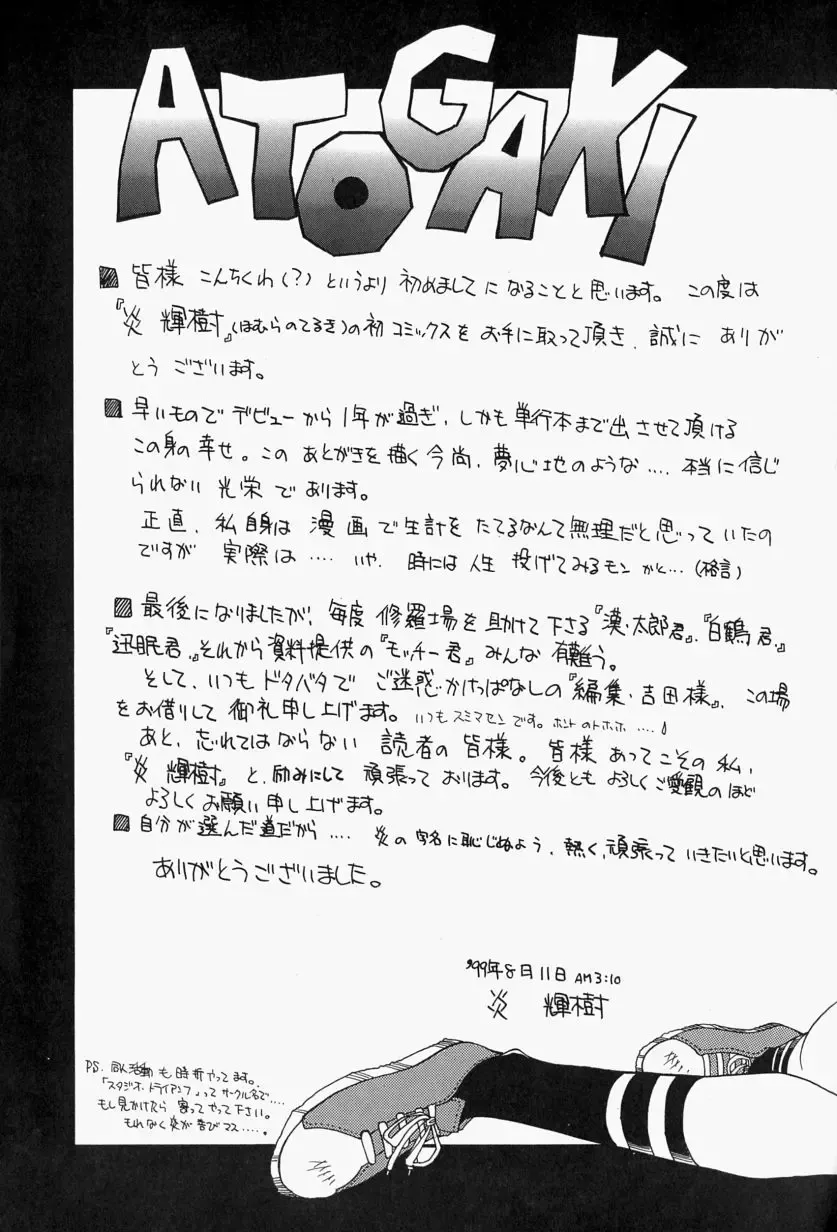 ATOGAKI
■ 皆様 こんちくわ(?) というより 初めまして になることと思います。 この度は
『炎 輝樹』(ほむらのてるき)の初コミックスを お手に取って頂き、誠に ありが
とう ございます。
■ 早いもので デビューから 1年が過ぎ、しかも 単行本まで出させて頂ける
この身の幸せ。この あとがきを描く今尚、夢心地のような .... 本当に信じ
られない 光栄 で あります。
正直、私自身は 漫画で生計を たてるなんて無理だと思っていたの
ですが 実際は .... いや、時には 人生 投げてみるモン かと...(格言)
■ 最後になりましたが、毎度 修羅場を助けて下さる『漢・太郎君』、『白鶴君』、
『迅眠君』、それから資料提供の『モッチー君』みんな 有難う。
そして、いつも ドタバタで ご迷惑かけっぱなしの『編集・吉田様』、この場
をお借りして 御礼申し上げます。いつもスミマセンです。ホントのトホホ ....♪
あと、忘れてはならない 読者の皆様。皆様 あってこその 私、
『炎 輝樹』と、励みにして 頑張って おります。今後とも よろしくご愛観のほど
よろしく お願い 申し上げます。
■ 自分が選んだ道だから .... 炎の字名に恥じぬよう、熱く、頑張って いきたいと思います。
ありがとうございました。
'99年8月11日 AM3:10
炎 輝樹
PS. 同人活動 も 時折やってます。
「スタジオ・トライアンフ」って サークル名で.....
もし見かけたら 寄ってやって下さい。
もれなく炎が 喜びマス .....、